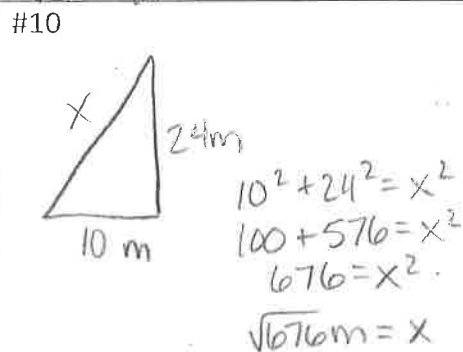 #10
x
24m
10 m
10² + 24² = x²
100 + 576 = x²
676 = x².
√676m = x